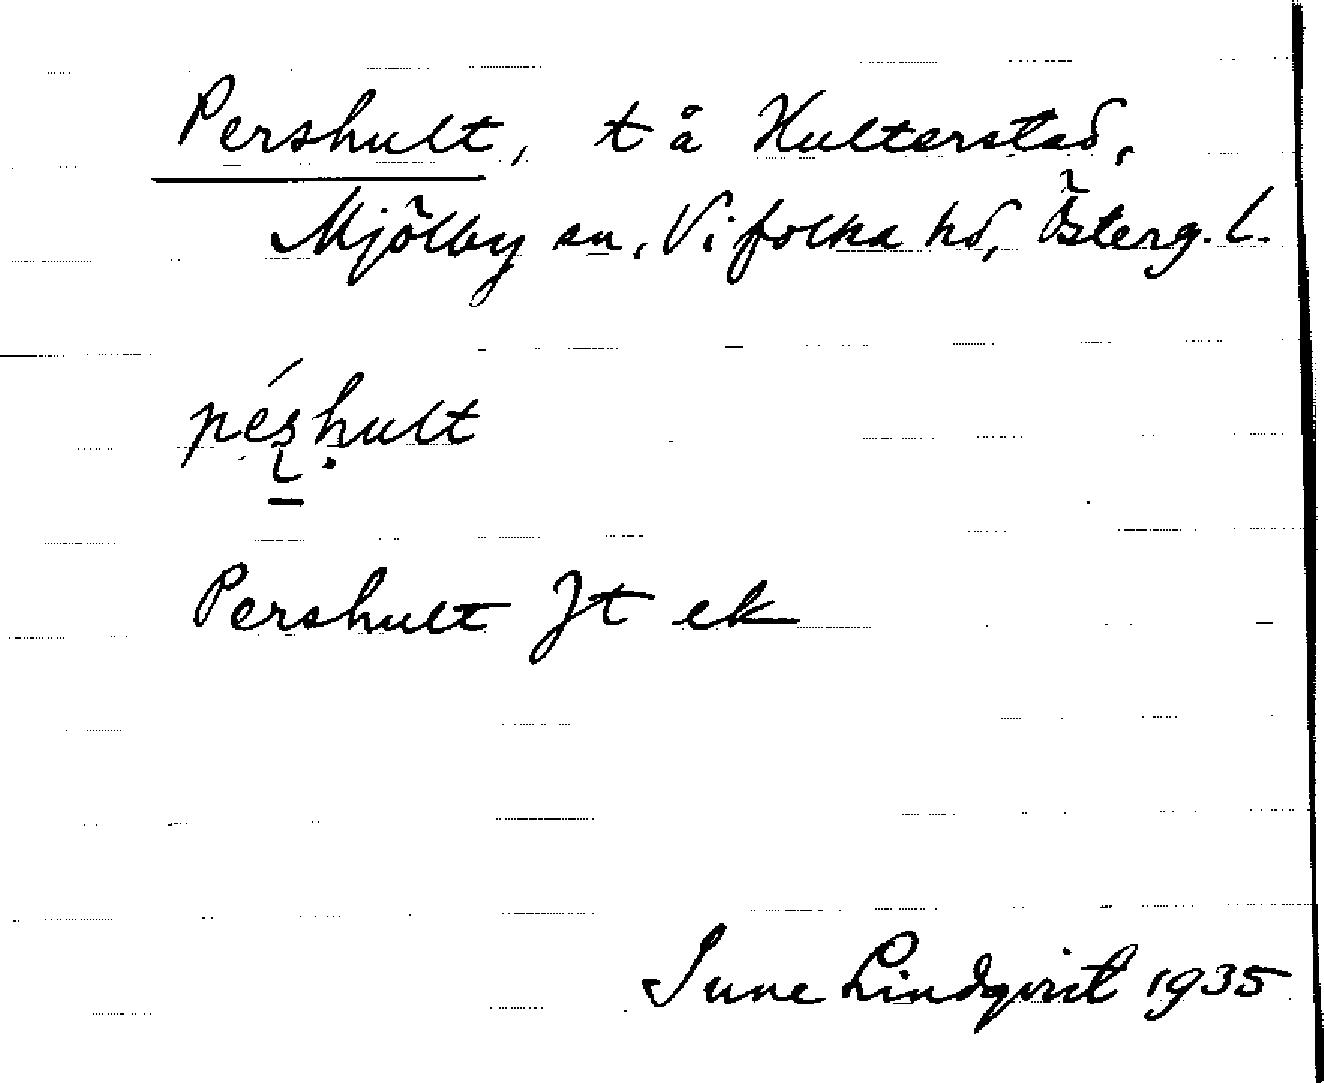 Pershult, t å Hulterstad,
Mjölby sn, Vifolka hd, Österg. l.
péʂḥult
Pershult Jt ek
Sune Lindqvist 1935